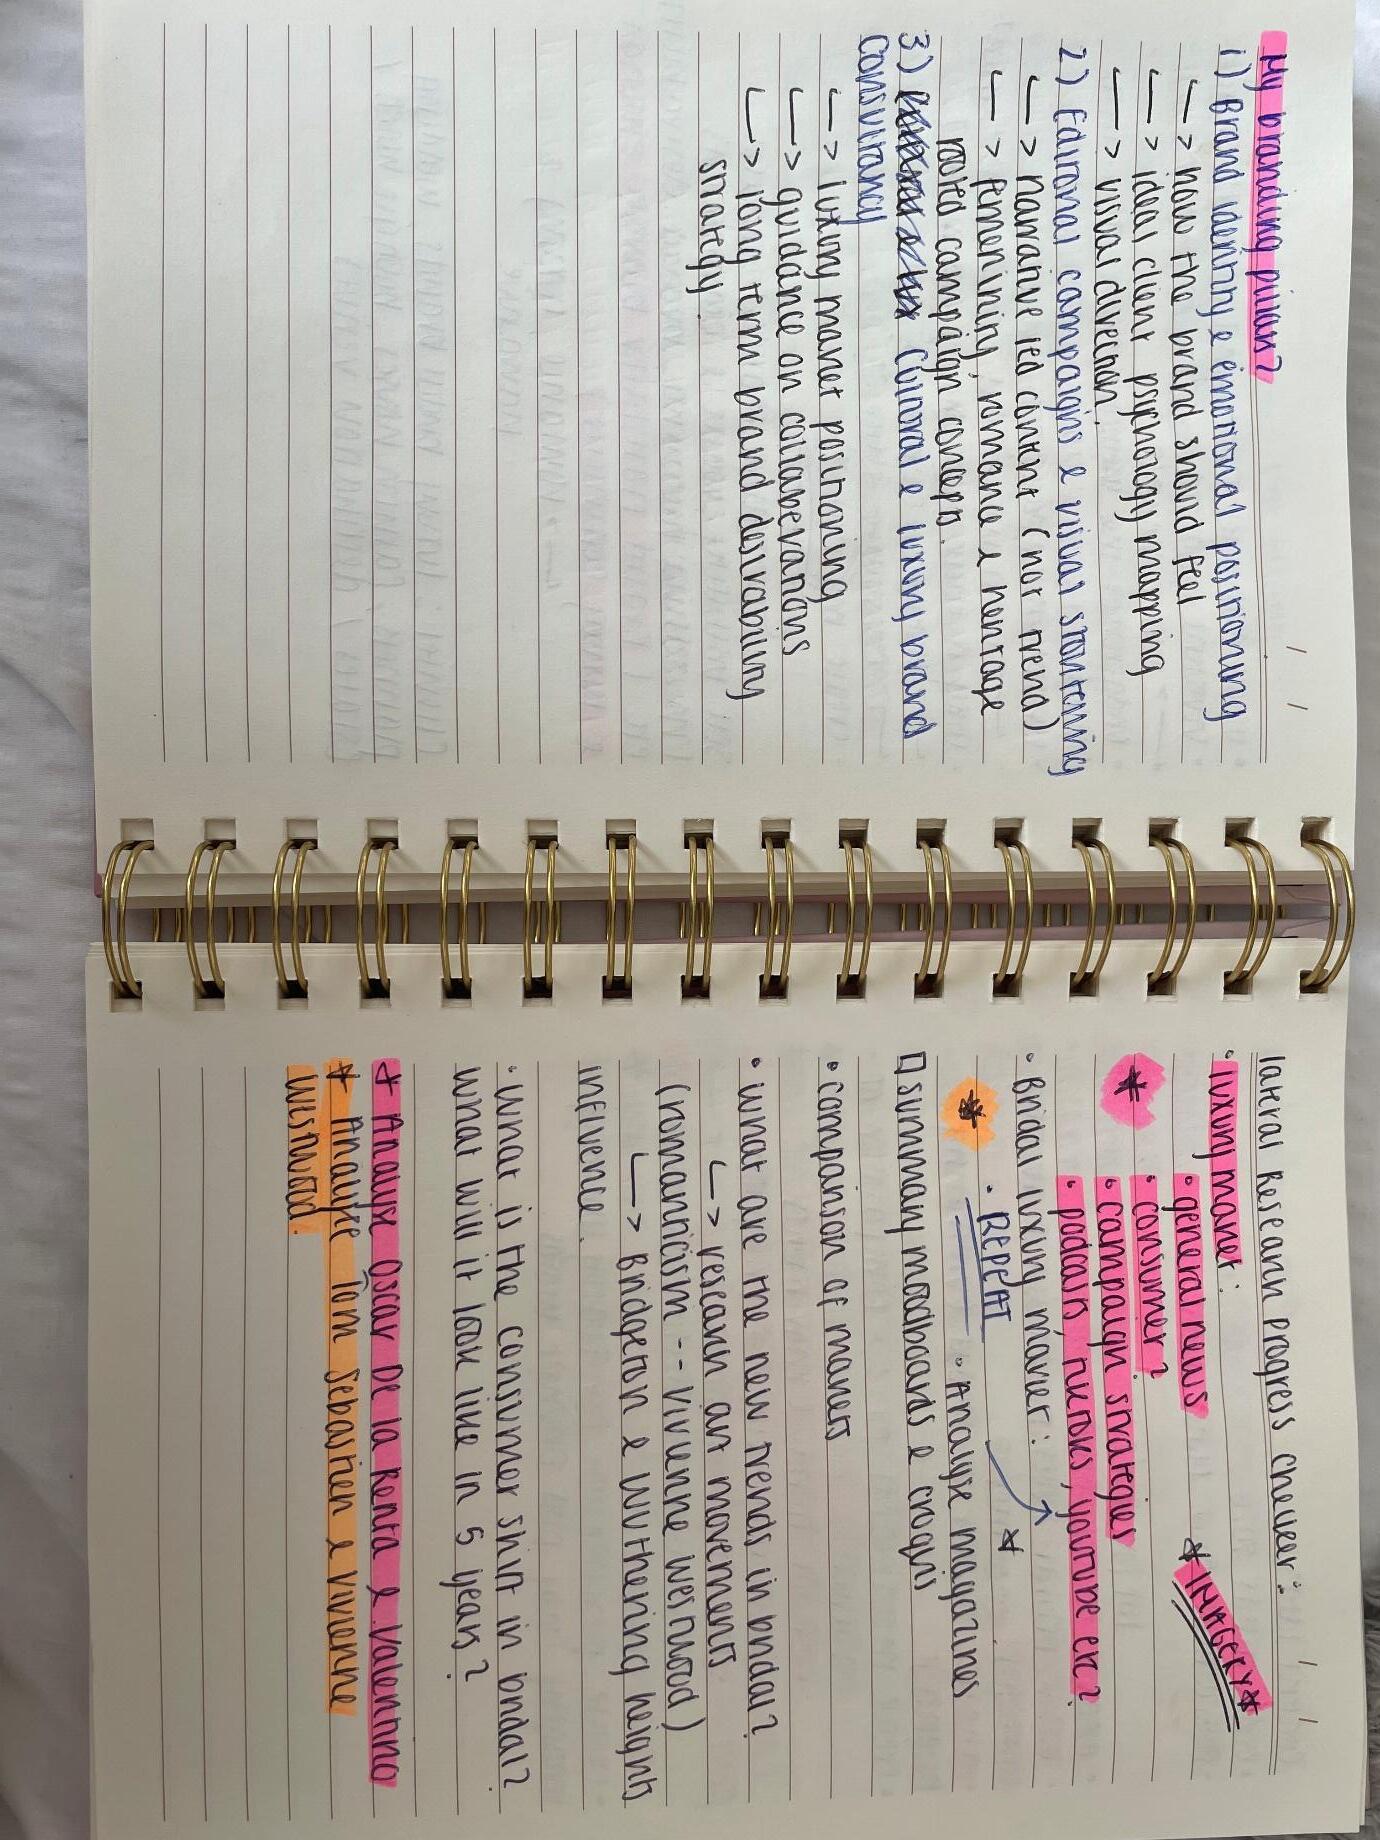 My branding pillars?
1) Brand identity & emotional positioning
↳ how the brand should feel
↳ ideal client psychology mapping
↳ visual direction.
2) Editorial campaigns & visual storytelling
↳ narrative led content (not trend)
↳ femeninity, romance & heritage
rooted campaign concepts.
3) Cultural & luxury brand
consultancy
↳ luxury market positioning
↳ guidance on collaberations
↳ long term brand desirability
strategy.
lateral Research Progress checker:
• luxury market:
*IMAGERY*
• general news
• consumer?
• campaign strategies
• podcasts, tiktoks, youtube etc?
• Bridal luxury market:
• REPEAT
• Analyse magazines
□ summary moodboards & croquis
• comparison of markets
• what are the new trends in bridal?
↳ research art movements
(romanticism -- vivienne westwood)
↳ Bridgeton & wuthering heights
influence.
• What is the consumer shift in bridal?
what will it look like in 5 years?
* Analyse Oscar De la Renta & Valentino
* Analyse Tom Sebastien & Vivienne
Westwood.